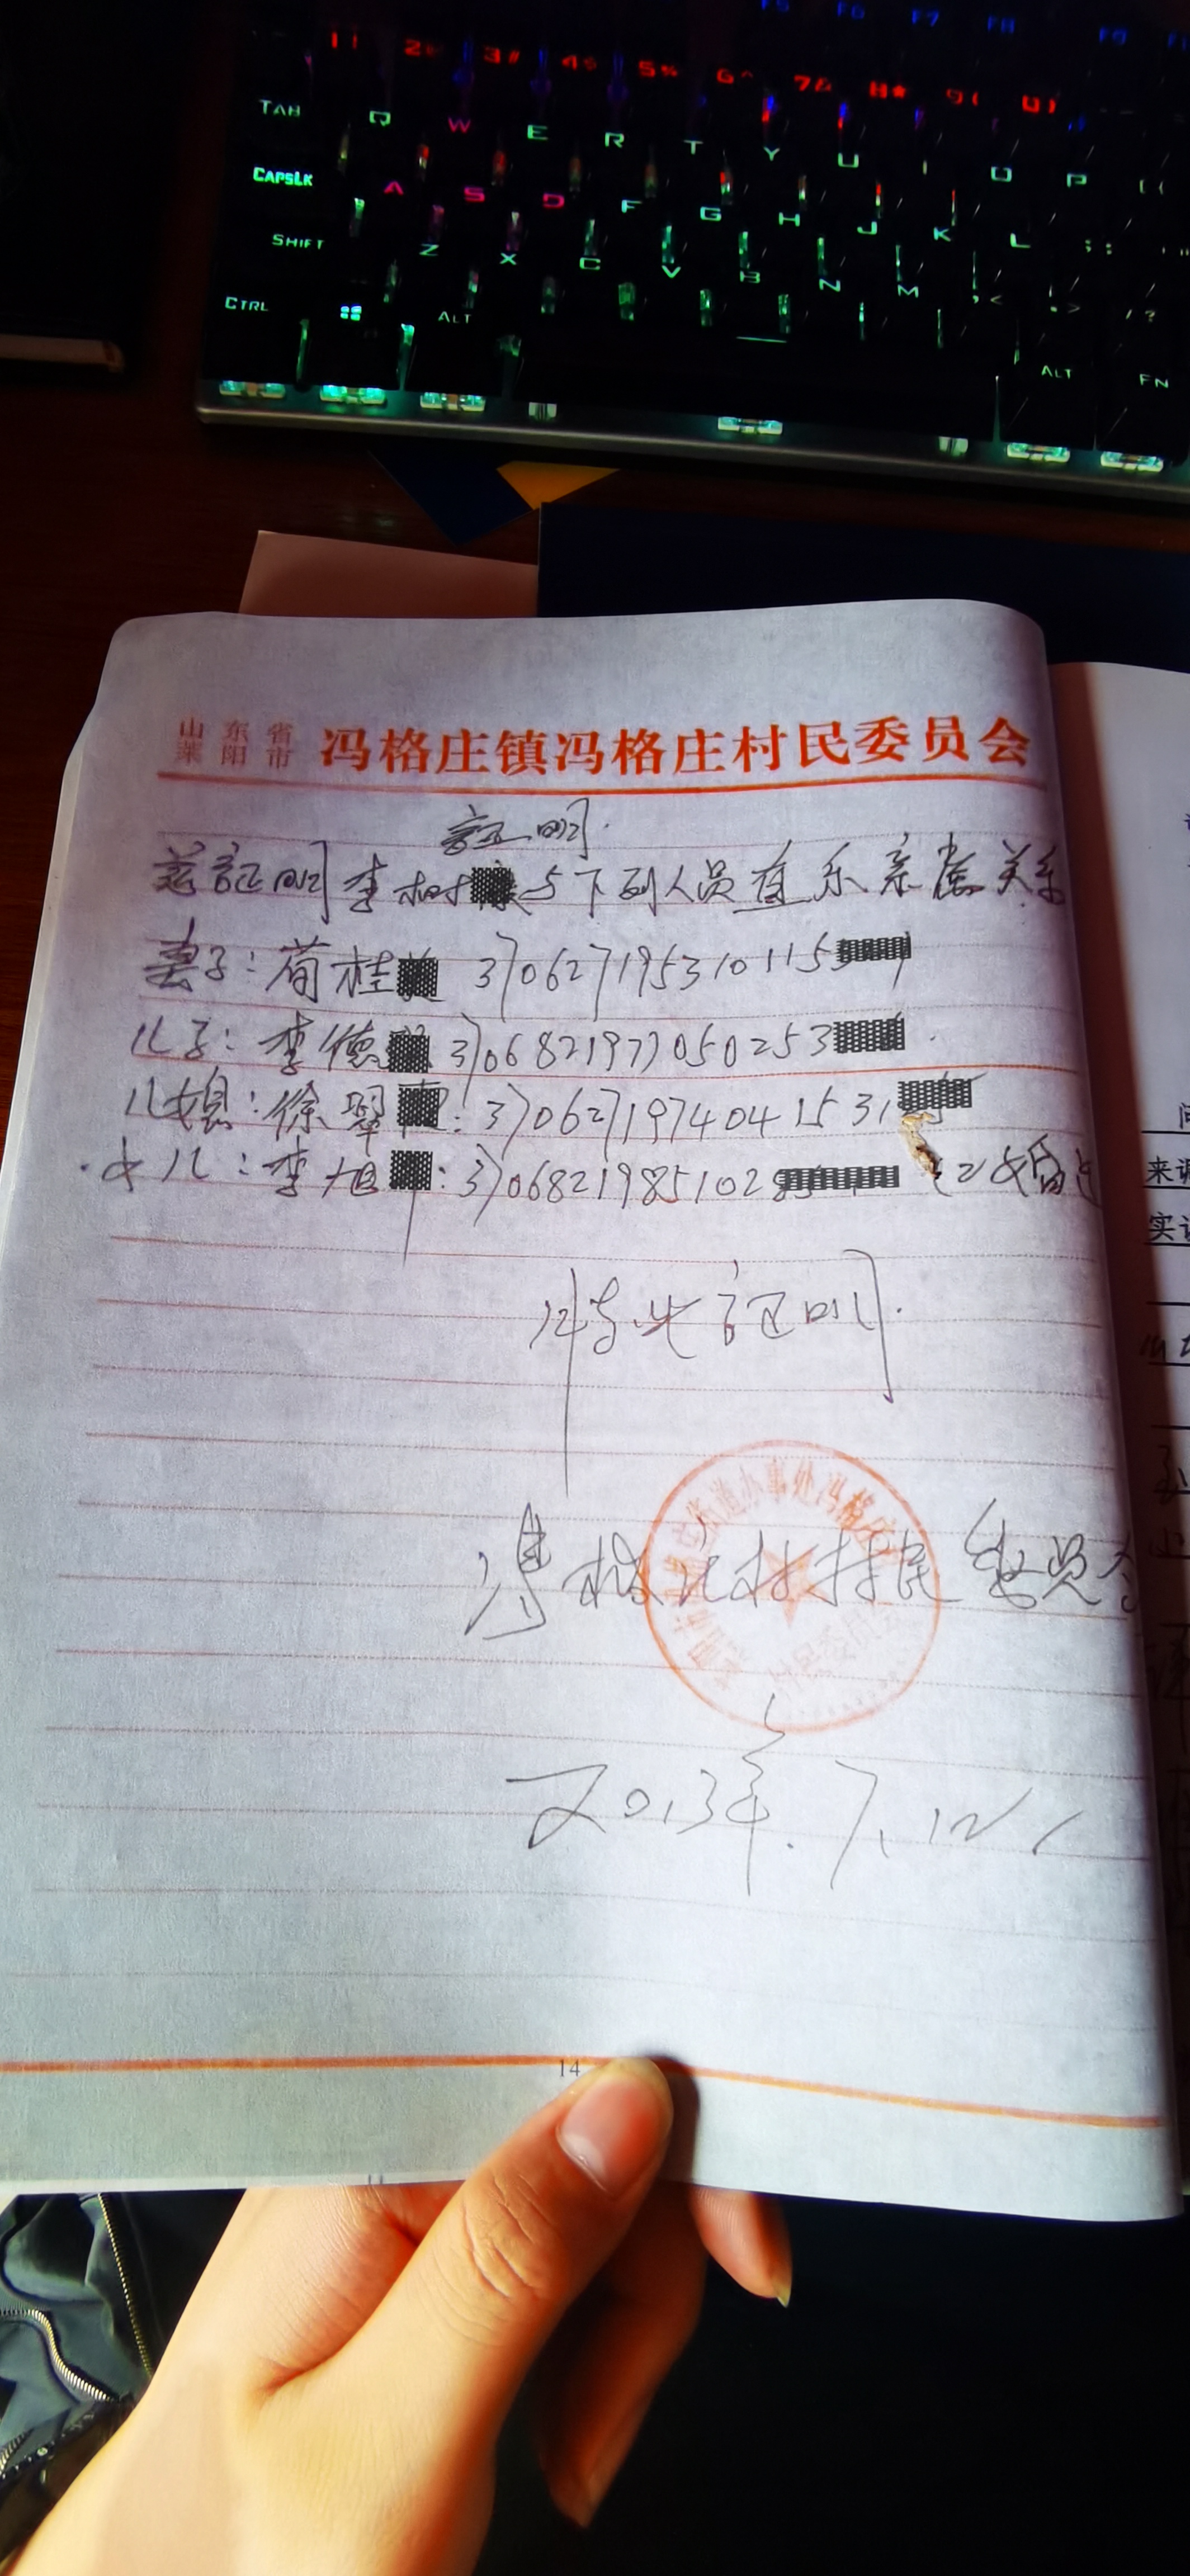 F5 F6 F7 F8 F9
1! 2@ 3# 4$ 5% 6^ 7& 8* 9( 0)
TAB Q W E R T Y U I O P [{
CAPSLK A S D F G H J K L ;: '"
SHIFT Z X C V B N M ,< .> /?
CTRL ALT ALT FN
山东省
莱阳市 冯格庄镇冯格庄村民委员会
证明
兹証明李树 与下列人员直系亲属关系
妻子：荀桂 370627195310115
儿子：李德 3706821977050253
儿媳：徐翠 ：370627197404153
女儿：李旭 ：37068219851028 已婚
特此证明
街道办事处冯格庄
村民委员会
冯格庄村村民委员会
2013年.7.12
14
来
实